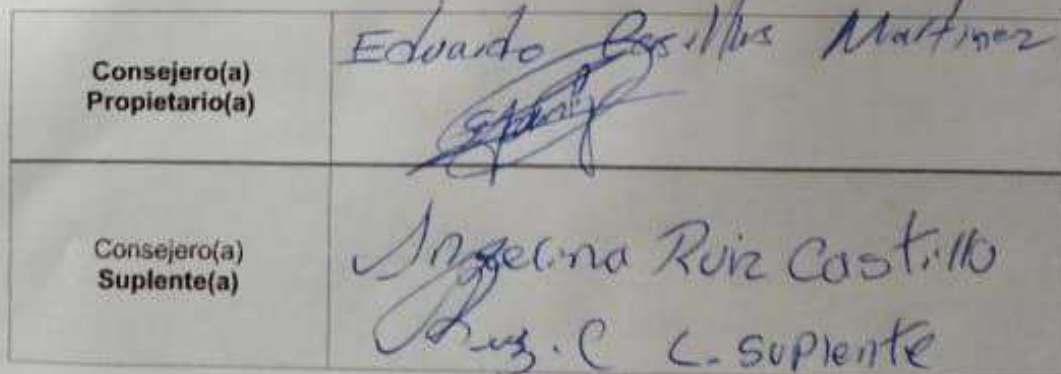 Consejero(a)
Propietario(a)
Eduardo Casillas Martinez
Consejero(a)
Suplente(a)
Angelina Ruiz Castillo
C C. Suplente